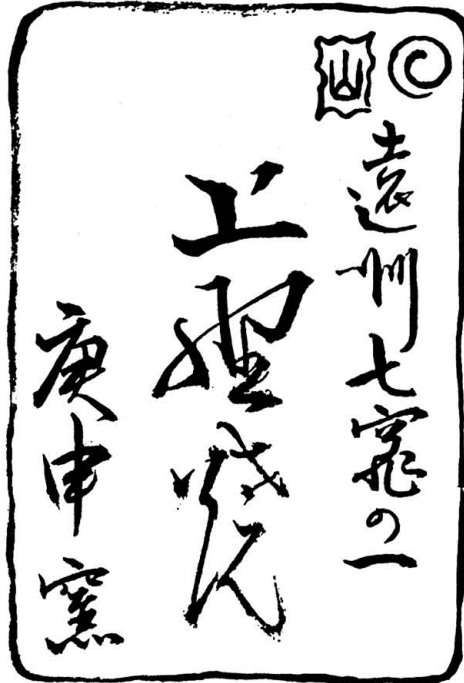 遠州七窯の一
上野焼
庚申窯